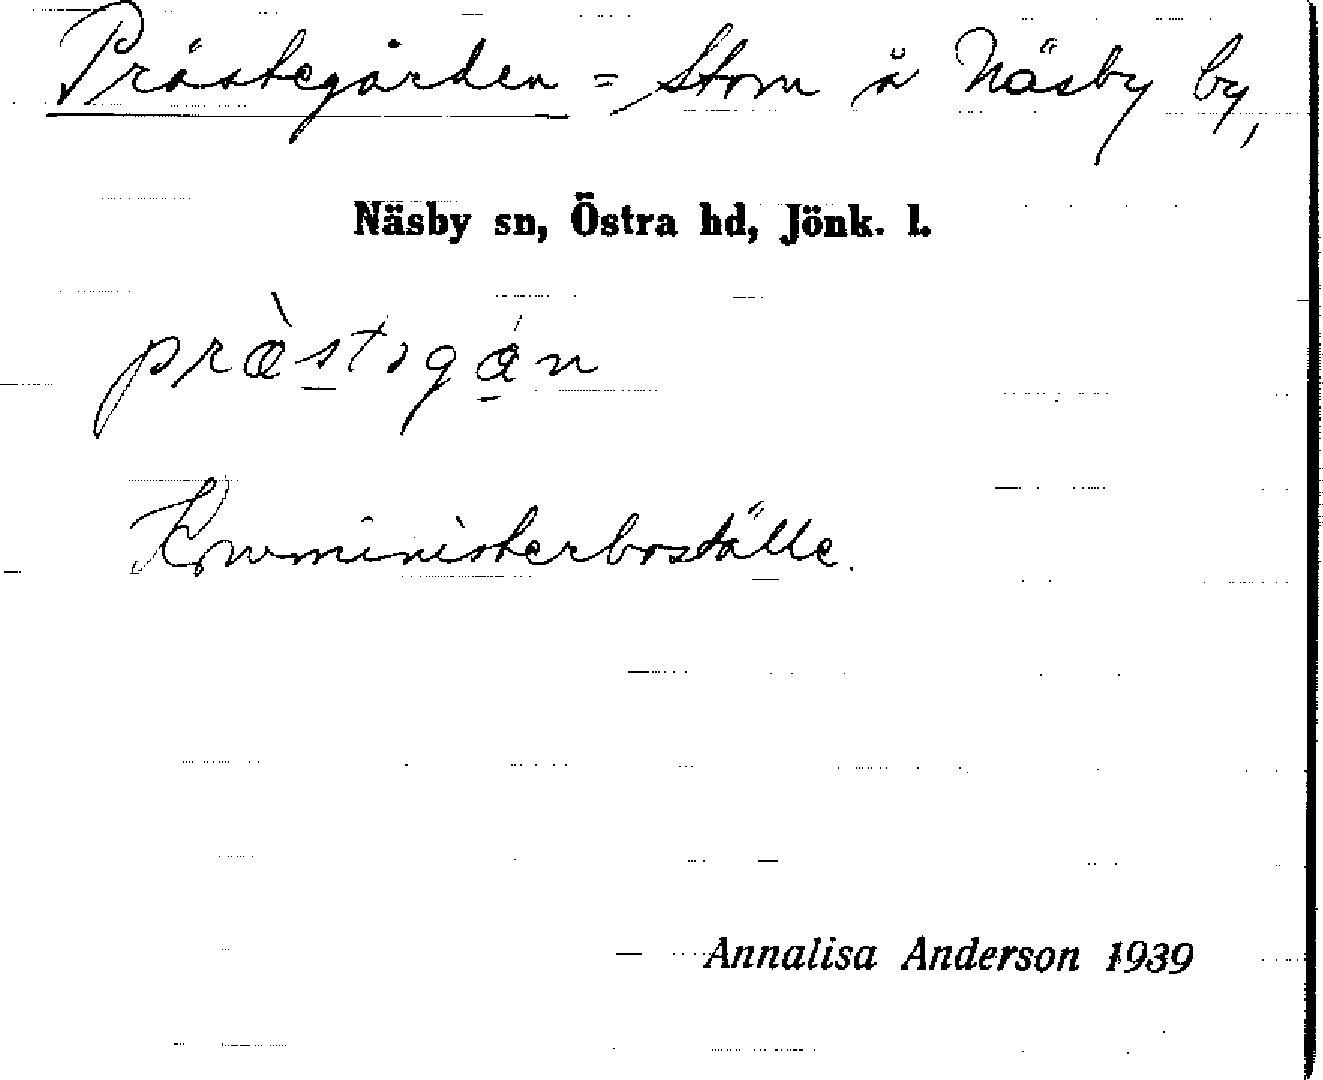 Prästegården = Stom å Näsby by,
Näsby sn, Östra hd, Jönk. l.
Komministerboställe.
Annalisa Anderson 1939